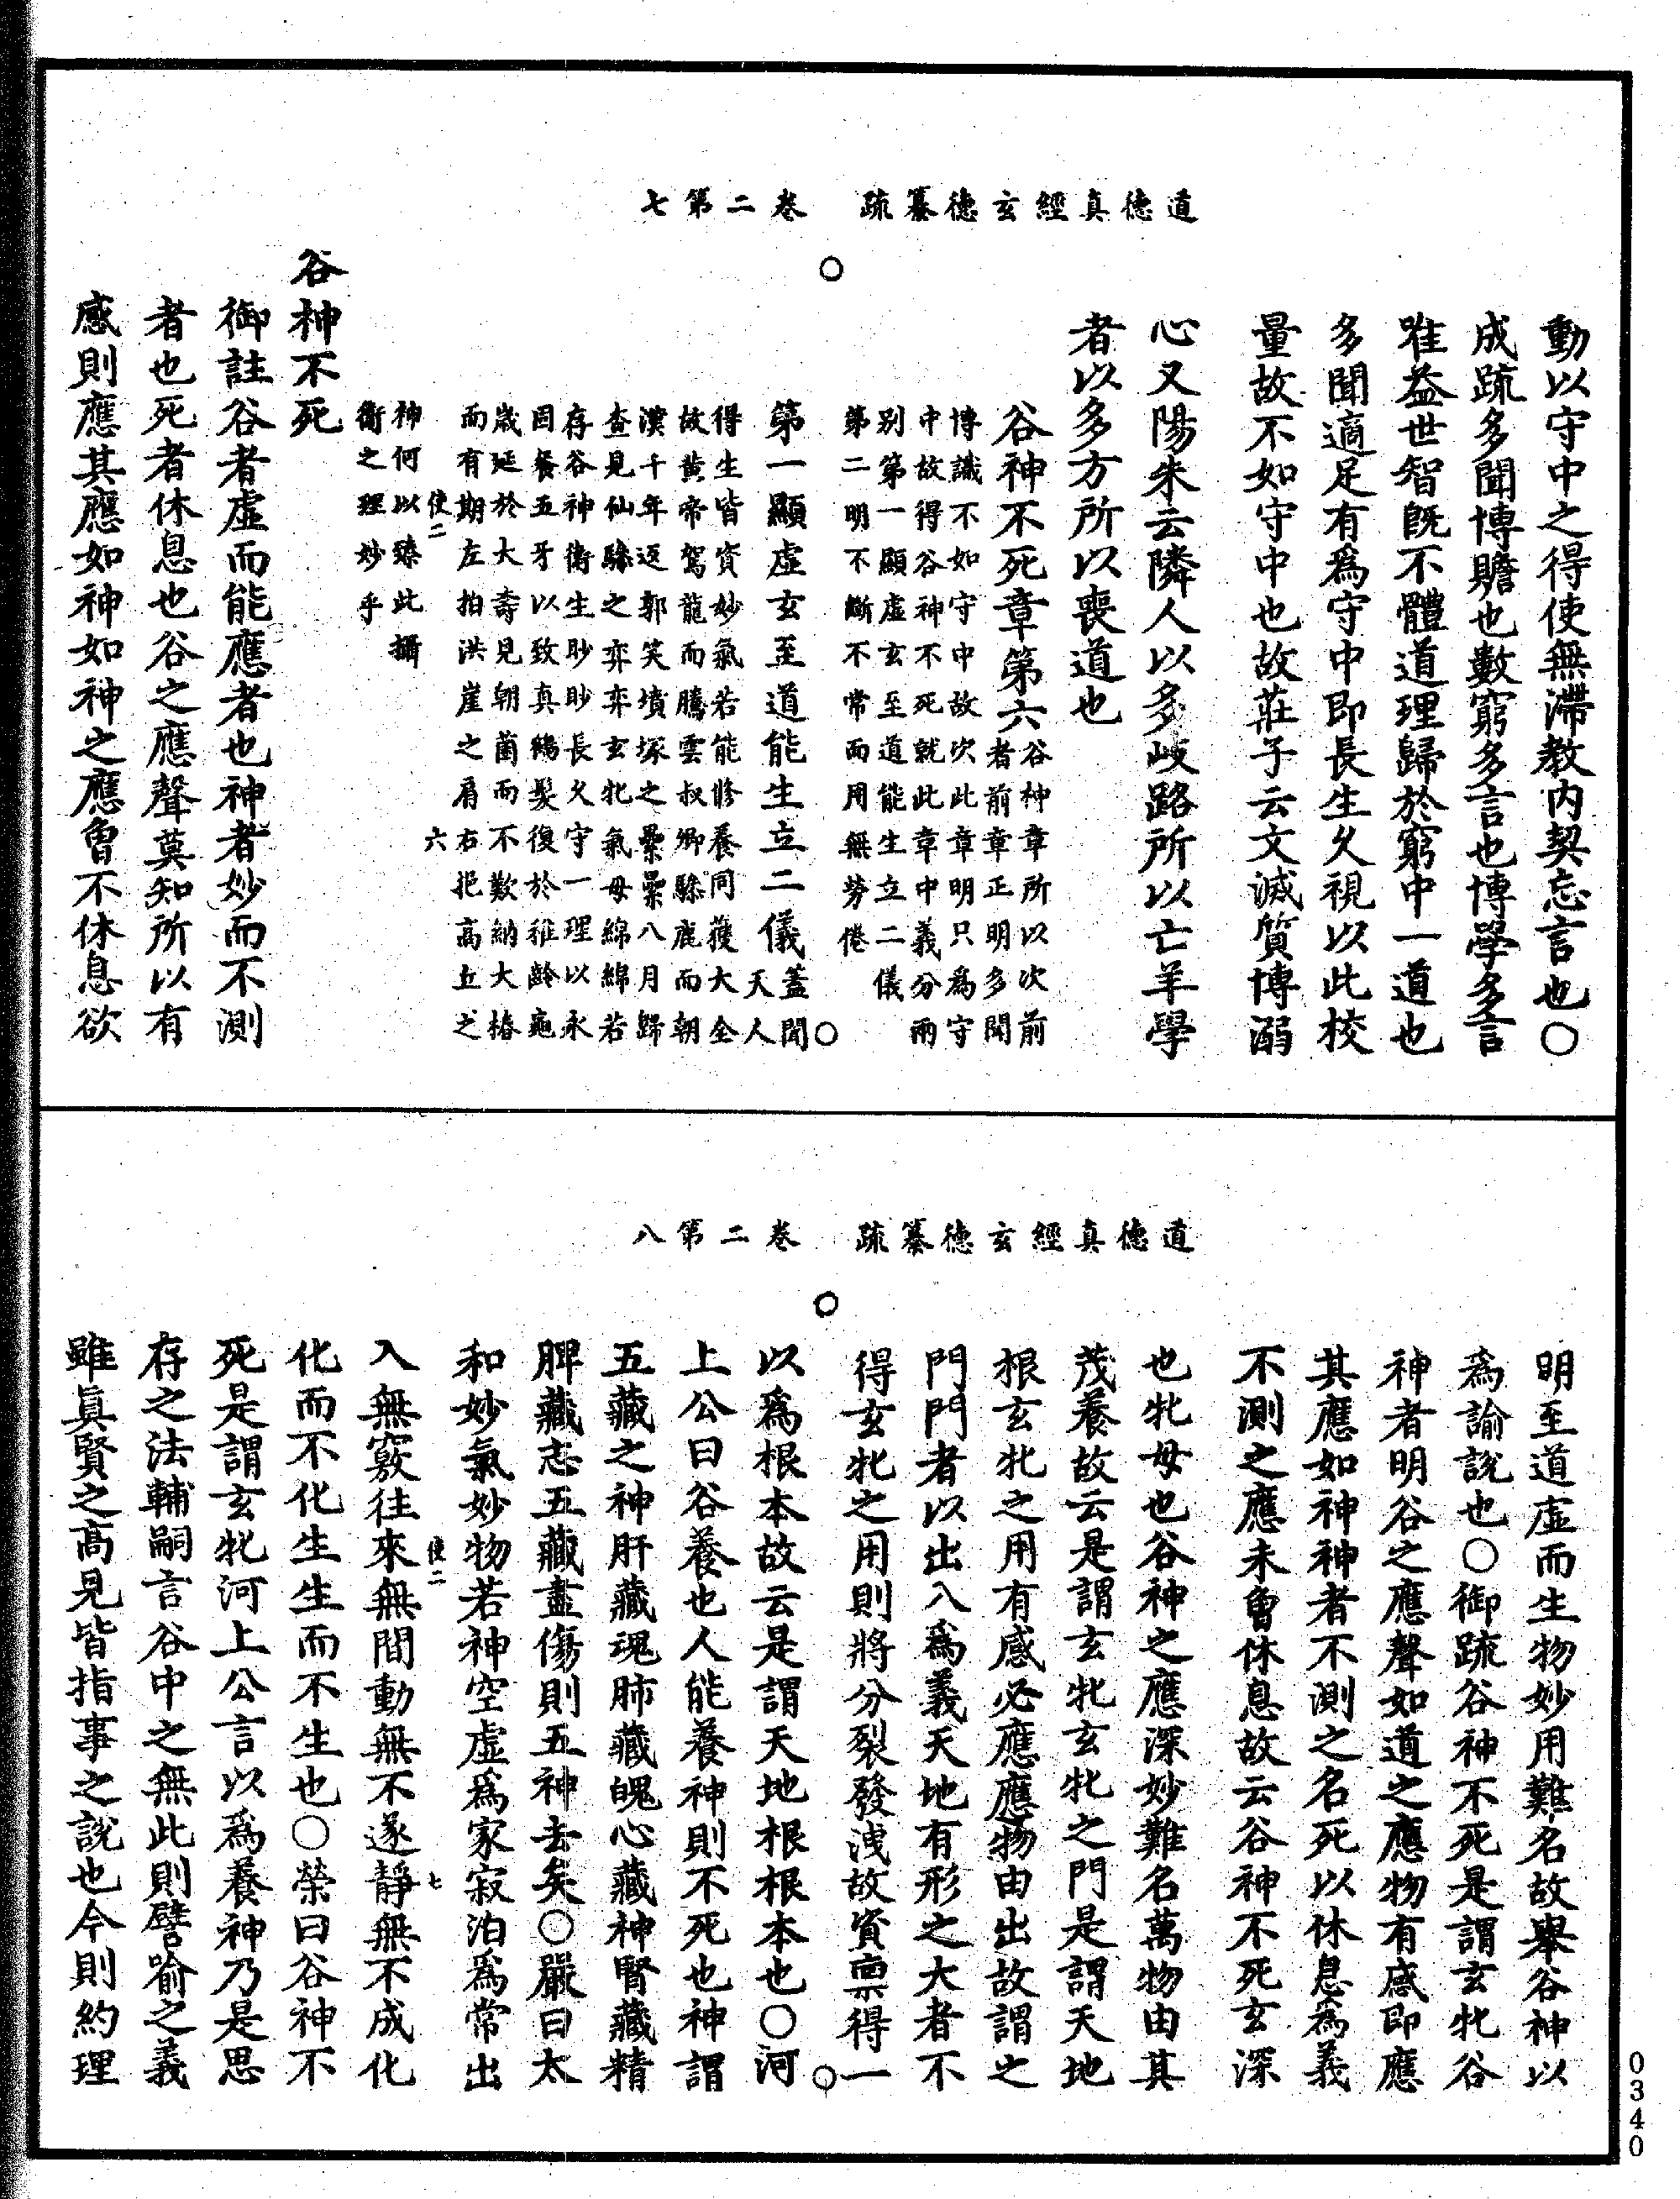 道德真經玄德纂疏　卷二第七
動以守中之得使無滯教内契忘言也○
成疏多聞博贍也數窮多言也博學多言
唯益世智既不體道理歸於窮中一道也
多聞適足有爲守中即長生久視以此校
量故不如守中也故莊子云文滅質博溺
心又陽朱云隣人以多岐路所以亡羊學
者以多方所以喪道也
谷神不死章第六谷神章所以次前
者前章正明多聞
博識不如守中故次此章明只爲守
中故得谷神不死就此章中義分兩
别第一顯虛玄至道能生立二儀
第二明不斷不常而用無勞倦
○
第一顯虛玄至道能生立二儀蓋聞
天人
得生皆資妙氣若能修養同獲大全
故黄帝駕龍而騰雲叔卿驂鹿而朝
漢千年返郭笑墳塚之纍纍八月歸
查見仙驂之弈弈玄牝氣母綿綿若
存谷神衛生眇眇長久守一理以永
固餐五牙以致真鶴髮復於稚齡龜
歳延於大壽見朝菌而不歎納大椿
而有期左拍洪崖之肩右挹髙丘之
使二　六
神何以臻此攝
衛之理妙乎
谷神不死
御註谷者虛而能應者也神者妙而不測
者也死者休息也谷之應聲莫知所以有
感則應其應如神如神之應曾不休息欲
道德真經玄德纂疏　卷二第八
明至道虛而生物妙用難名故舉谷神以
爲諭說也○御疏谷神不死是謂玄牝谷
神者明谷之應聲如道之應物有感即應
其應如神神者不測之名死以休息爲義
不測之應未曾休息故云谷神不死玄深
也牝母也谷神之應深妙難名萬物由其
茂養故云是謂玄牝玄牝之門是謂天地
根玄牝之用有感必應應物由出故謂之
門門者以出入爲義天地有形之大者不
得玄牝之用則將分裂發洩故資禀得一
○
以爲根本故云是謂天地根根本也○河
上公曰谷養也人能養神則不死也神謂
五藏之神肝藏魂肺藏魄心藏神腎藏精
脾藏志五藏盡傷則五神去矣○嚴曰太
和妙氣妙物若神空虛爲家寂泊爲常出
使二　七
入無竅往來無間動無不遂靜無不成化
化而不化生生而不生也○榮曰谷神不
死是謂玄牝河上公言以爲養神乃是思
存之法輔嗣言谷中之無此則譬喻之義
雖眞賢之髙見皆指事之說也今則約理
0340